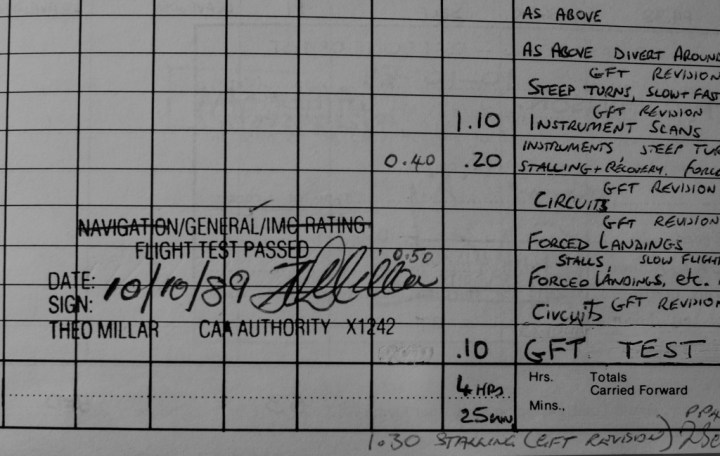 AS ABOVE
AS ABOVE DIVERT AROUND
GFT REVISION
STEEP TURNS, SLOW + FAST
GFT REVISION
1.10 INSTRUMENT SCANS
INSTRUMENTS STEEP TUR
0.40 .20 STALLING + RECOVERY, FORCE
GFT REVISION
CIRCUITS
GFT REVISION
FORCED LANDINGS
STALLS SLOW FLIGH
FORCED LANDINGS, etc.
GFT REVISION
Circuits
NAVIGATION/GENERAL/IMC RATING
FLIGHT TEST PASSED
0.50
DATE: 10/10/89
SIGN:
THEO MILLAR CAA AUTHORITY X1242
.10 GFT. TEST
4 HRS Hrs. Totals
Carried Forward
25 MIN Mins.,
1.30 STALLING (GFT REVISION)